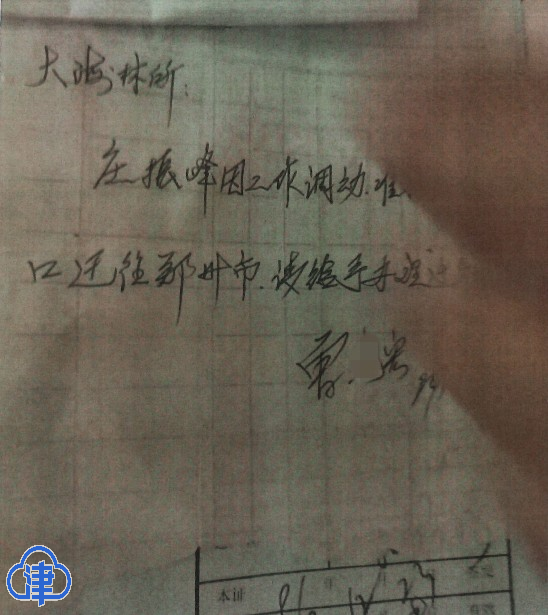 大海林所:
庄振峰因工作调动.准
口迁往郑州市.请给予办理迁
曹
本证
年 月
津